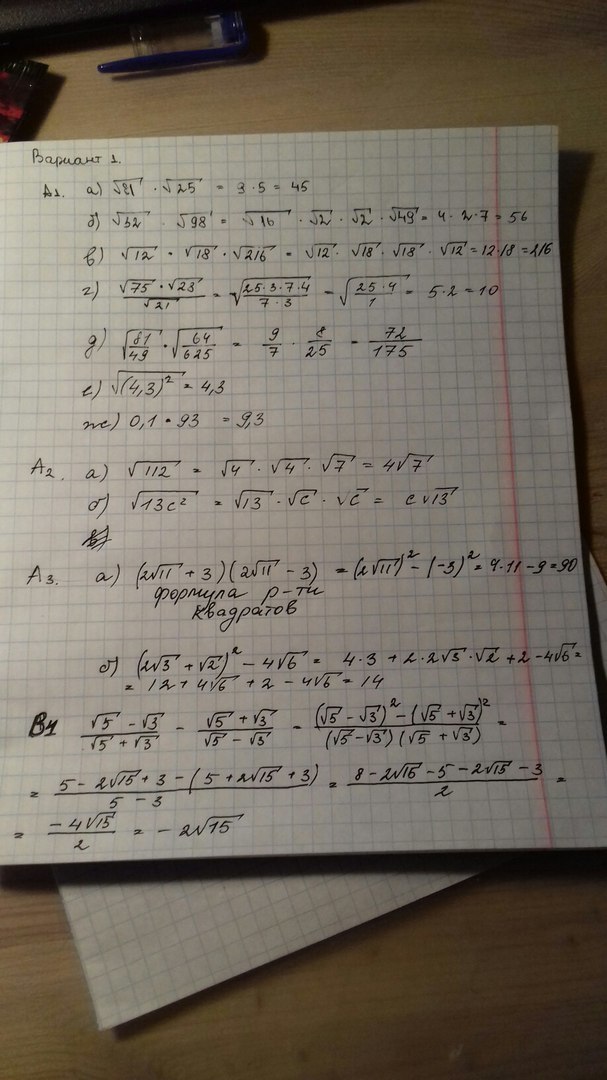 Вариант 1.
А1. а) √81 · √25 = 9·5 = 45
б) √32 · √98 = √16 · √2 · √2 · √49 = 4·2·7 = 56
в) √12 · √18 · √216 = √12 · √18 · √18 · √12 = 12·18 = 216
г) √75 · √28 / √21 = √(25·3·7·4 / 7·3) = √(25·4 / 1) = 5·2 = 10
д) √(81/49) · √(64/625) = 9/7 · 8/25 = 72/175
е) √(4,3)² = 4,3
ж) 0,1 · 93 = 9,3
А2. а) √112 = √4 · √4 · √7 = 4√7
б) √13c² = √13 · √c · √c = c√13
А3. а) (2√11 + 3)(2√11 - 3) = (2√11)² - (-3)² = 4·11 - 9 = 90
формула р-ти
квадратов
б) (2√3 + √2)² - 4√6 = 4·3 + 2·2√3·√2 + 2 - 4√6 =
= 12 + 4√6 + 2 - 4√6 = 14
В1 (√5 - √3)/(√5 + √3) - (√5 + √3)/(√5 - √3) = ((√5 - √3)² - (√5 + √3)²)/((√5 - √3)(√5 + √3)) =
= (5 - 2√15 + 3 - (5 + 2√15 + 3))/(5 - 3) = (8 - 2√15 - 5 - 2√15 - 3)/2 =
= -4√15/2 = -2√15